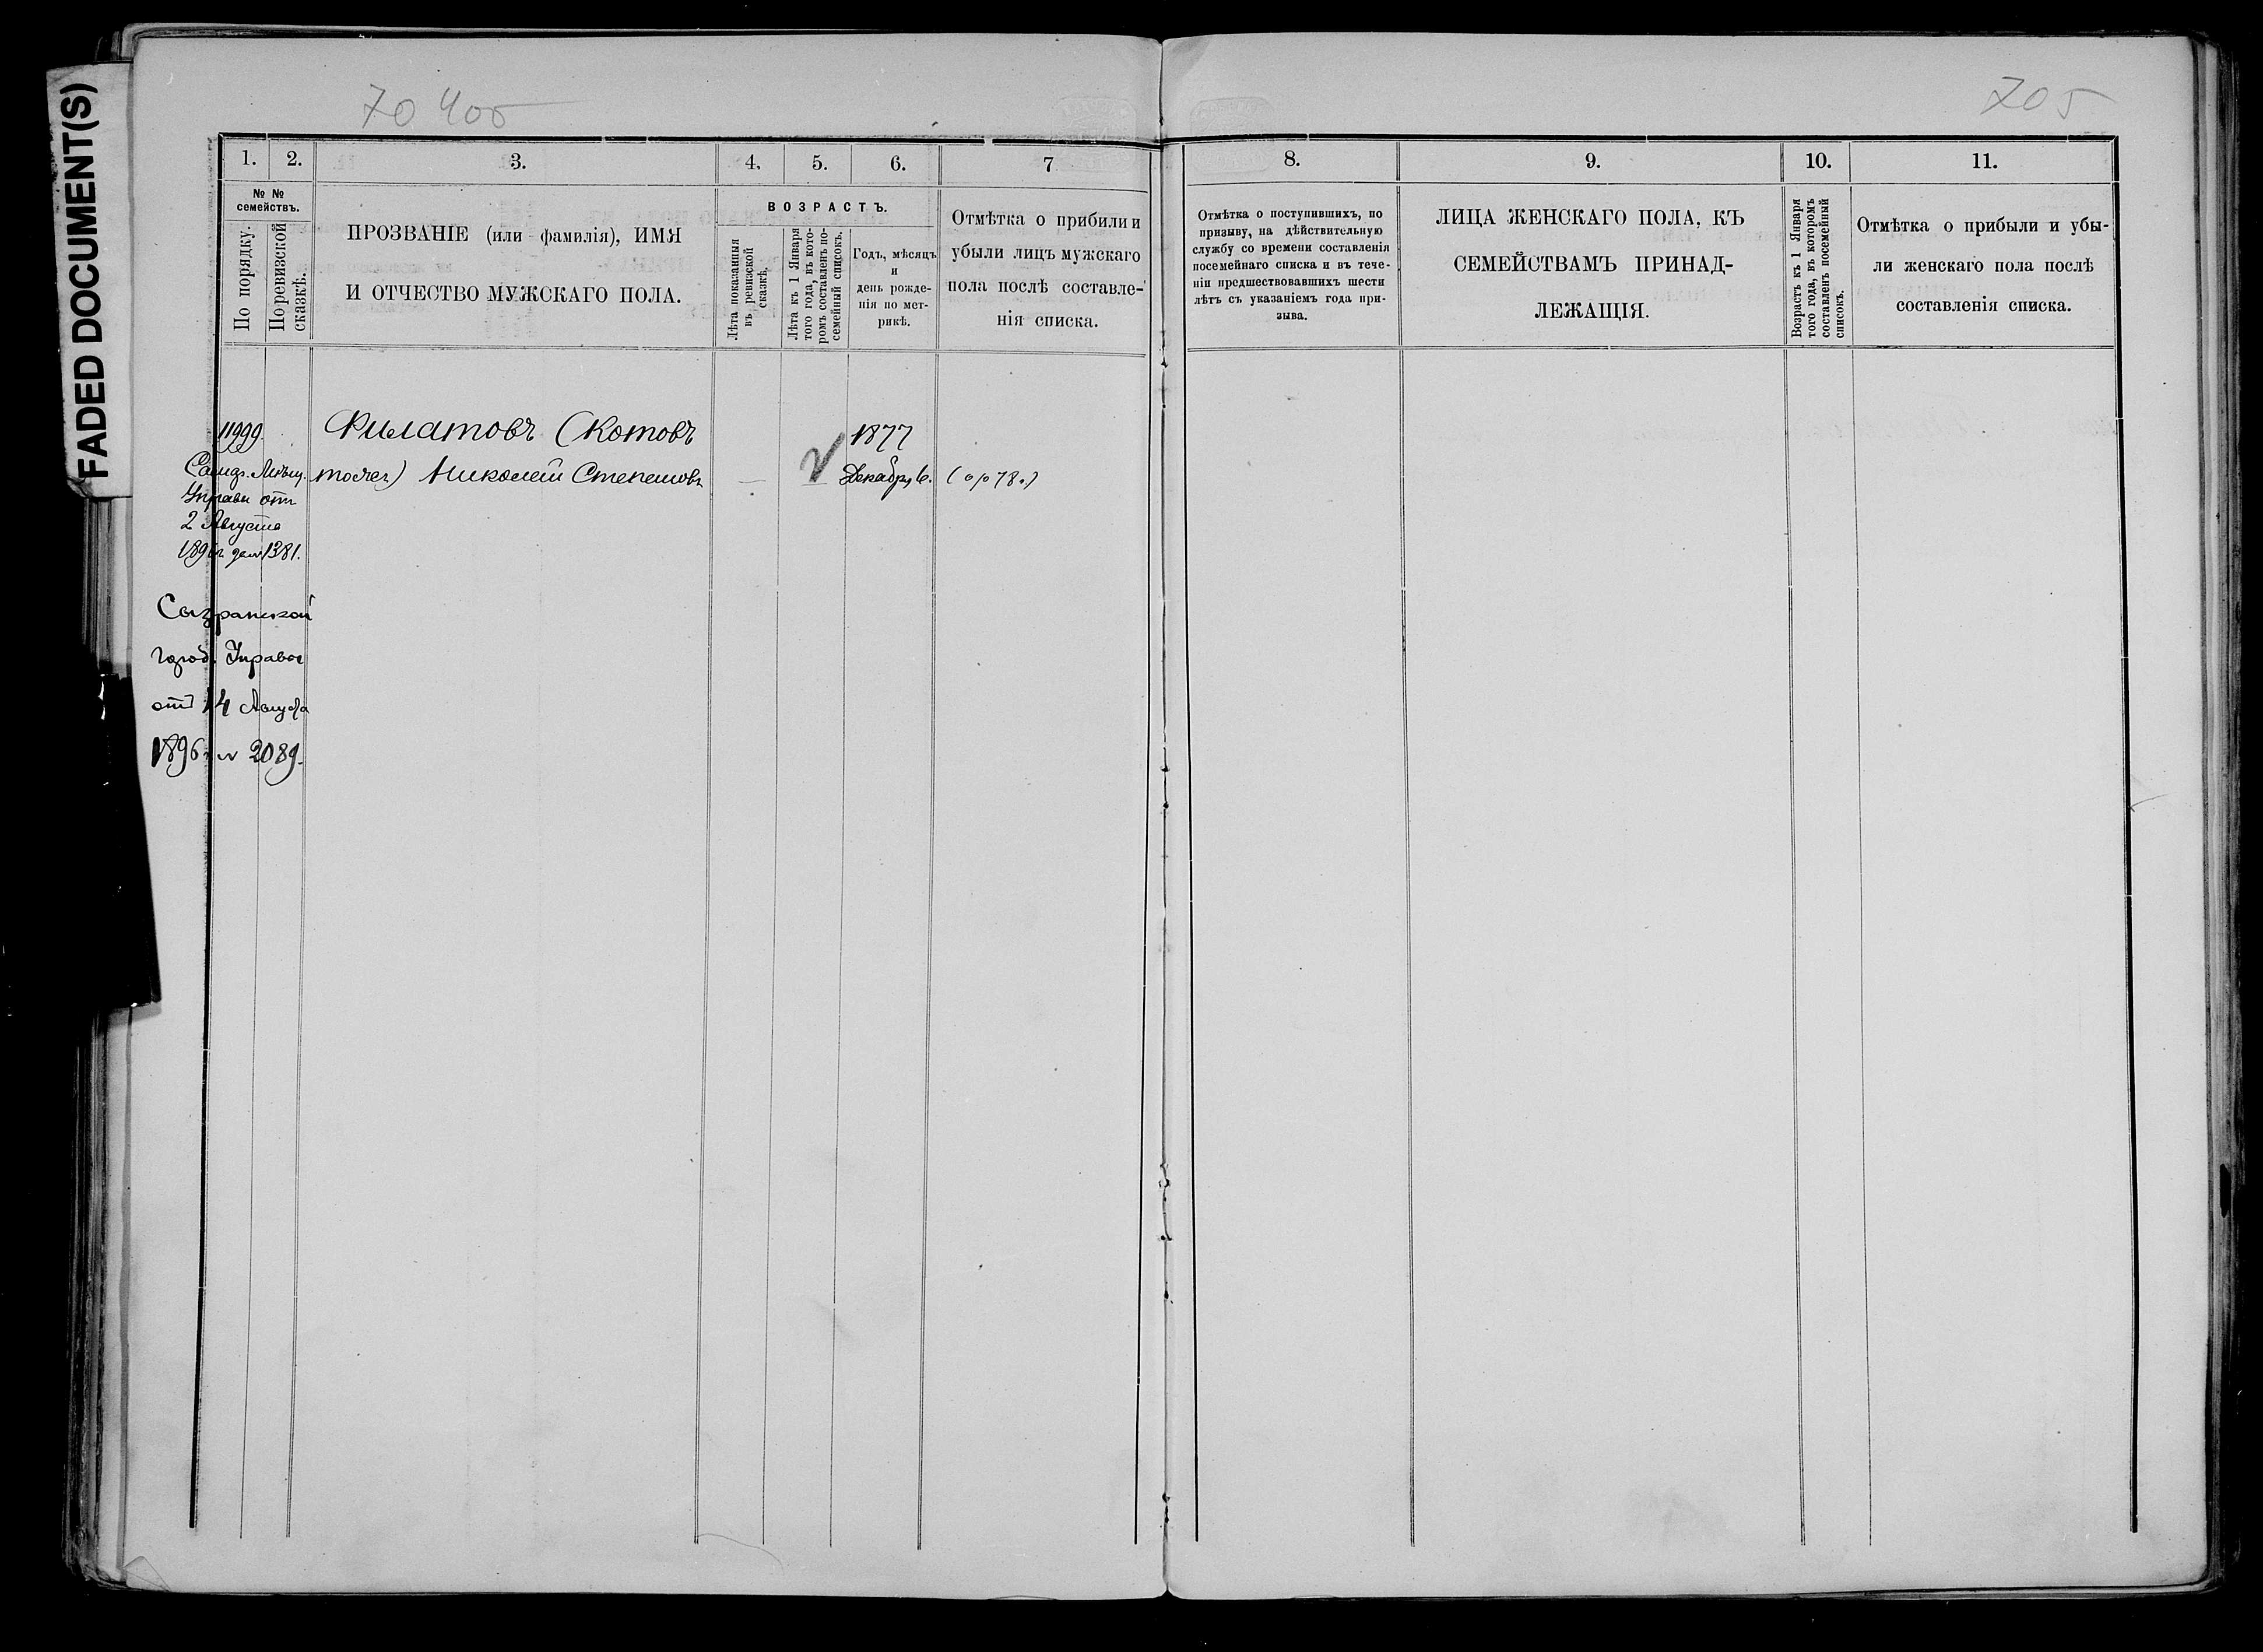 FADED DOCUMENT(S)
70 405
705
1.
2.
3.
4.
5.
6.
7
№ №
семействъ.
По порядку.
По ревизской
сказкѣ.
ПРОЗВАНІЕ (или фамилія), ИМЯ
И ОТЧЕСТВО МУЖСКАГО ПОЛА.
ВОЗРАСТЪ.
Лѣта показанныя
въ ревизской
сказкѣ.
Лѣта къ 1 Января
того года, въ кото-
ромъ составленъ по-
семейный списокъ.
Годъ, мѣсяцъ
и
день рожде-
нія по мет-
рикѣ.
Отмѣтка о прибыли и
убыли лицъ мужскаго
пола послѣ составле-
нія списка.
11999.
Филатовъ (Котовъ
1877
тожъ) Николай Степановъ
—
Декабря 6.
Управы отъ
2 Августа
1381.
Сызранской
город. Управы
отъ 14 Августа
1896 г. № 2089.
8.
9.
10.
11.
Отмѣтка о поступившихъ, по
призыву, на дѣйствительную
службу со времени составленія
посемейнаго списка и въ тече-
ніи предшествовавшихъ шести
лѣтъ съ указаніемъ года при-
зыва.
ЛИЦА ЖЕНСКАГО ПОЛА, КЪ
СЕМЕЙСТВАМЪ ПРИНАД-
ЛЕЖАЩІЯ.
Возрастъ къ 1 Января
того года, въ которомъ
составленъ посемейный
списокъ.
Отмѣтка о прибыли и убы-
ли женскаго пола послѣ
составленія списка.